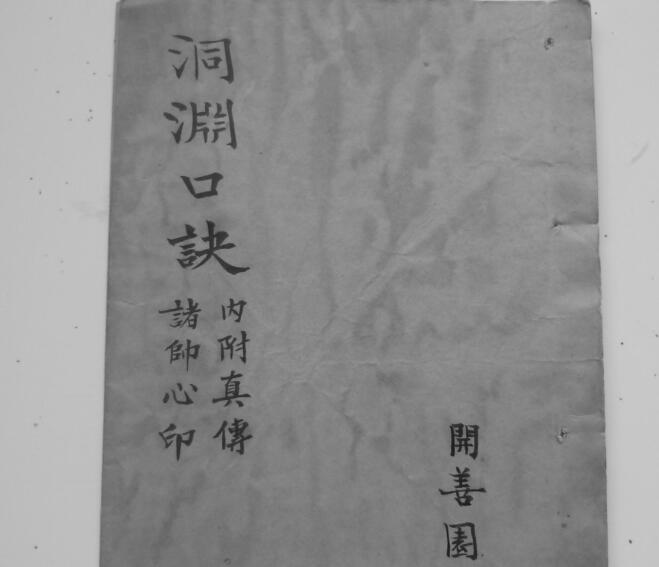 洞淵口訣
内附真傳
諸帥心印
開善園